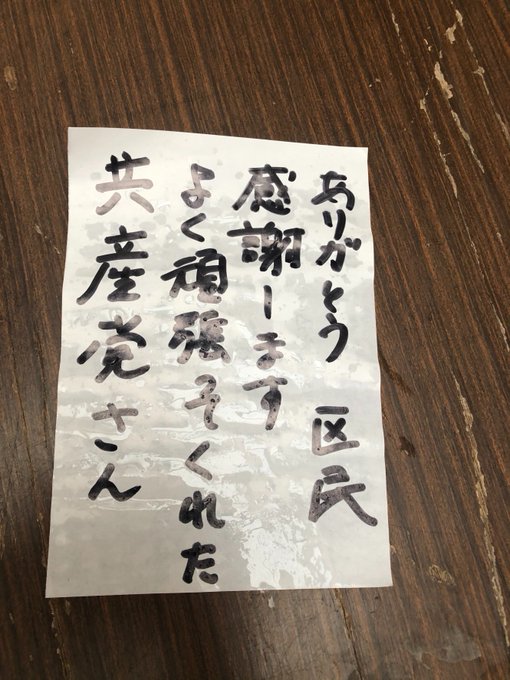 共産党さん
よく頑張そくれた
感謝します
ありがとう 区民